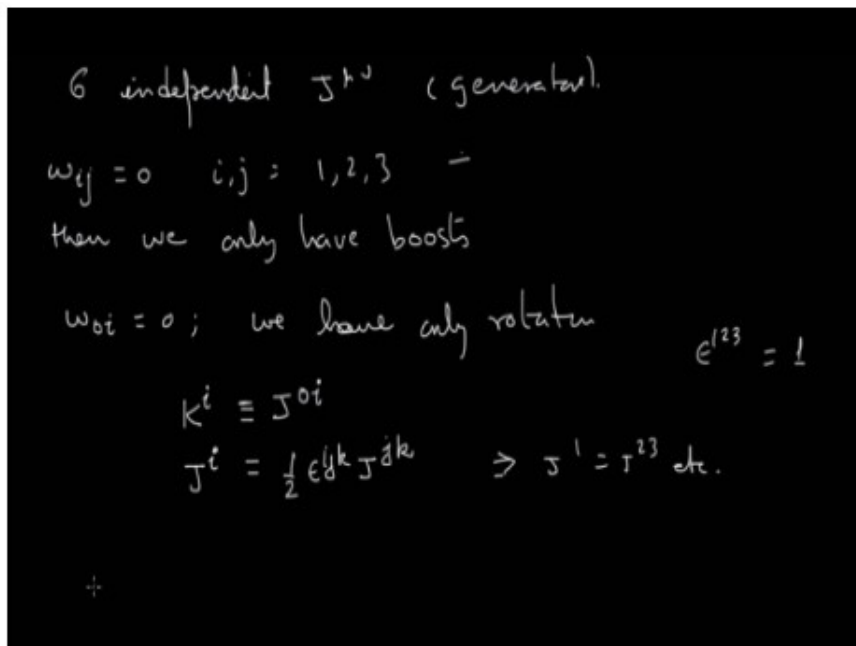 6 independent J^{μν} (generators).
ω_{ij} = 0 i,j = 1,2,3 –
then we only have boosts
ω_{0i} = 0; we have only rotation
ϵ^{123} = 1
K^i ≡ J^{0i}
J^i = \frac{1}{2} ϵ^{ijk} J^{jk} ⇒ J^1 = J^{23} etc.